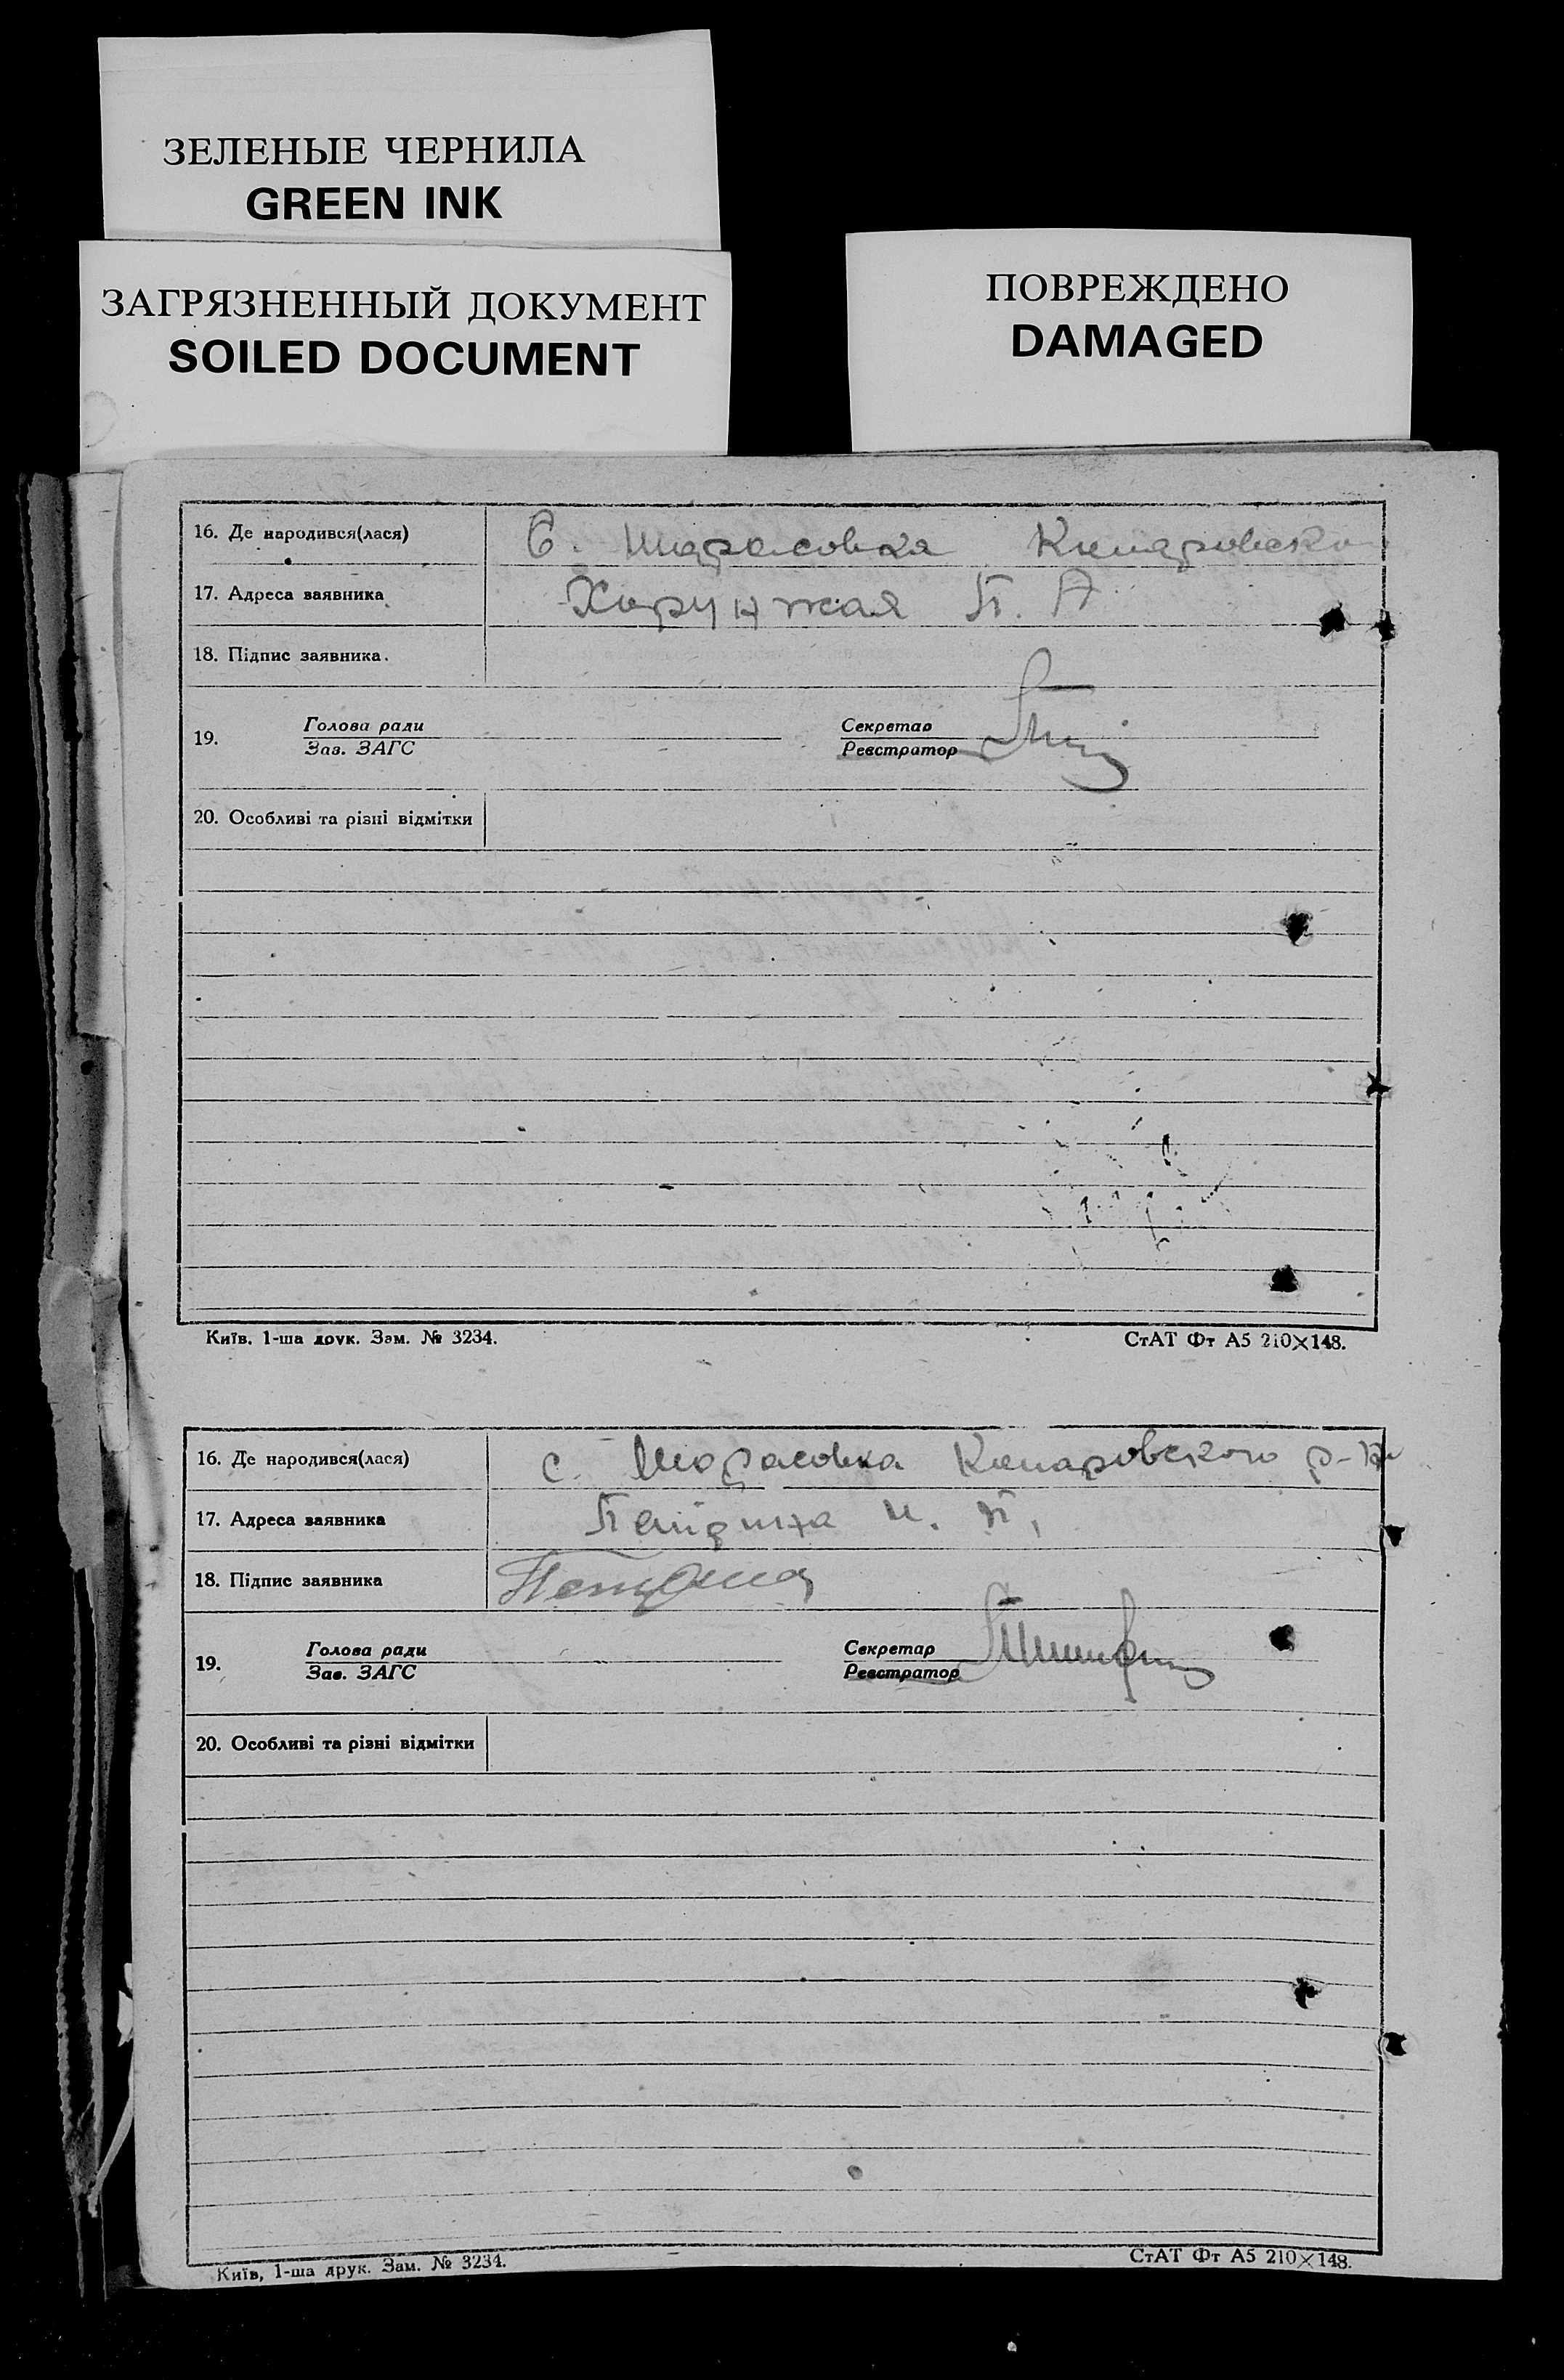 ЗЕЛЕНЫЕ ЧЕРНИЛА
GREEN INK
ЗАГРЯЗНЕННЫЙ ДОКУМЕНТ
SOILED DOCUMENT
ПОВРЕЖДЕНО
DAMAGED
16. Де народився(лася) С.
17. Адреса заявника Хорунжая П. А
18. Підпис заявника.
19. Голова ради Секретар
Зав. ЗАГС Реєстратор
20. Особливі та різні відмітки
Київ, 1-ша друк. Зам. № 3234. СтАТ Фт А5 210×148.
16. Де народився(лася) с. р-на
17. Адреса заявника
18. Підпис заявника
19. Голова ради Секретар
Зав. ЗАГС Реєстратор
20. Особливі та різні відмітки
Київ, 1-ша друк. Зам. № 3234. СтАТ Фт А5 210×148.